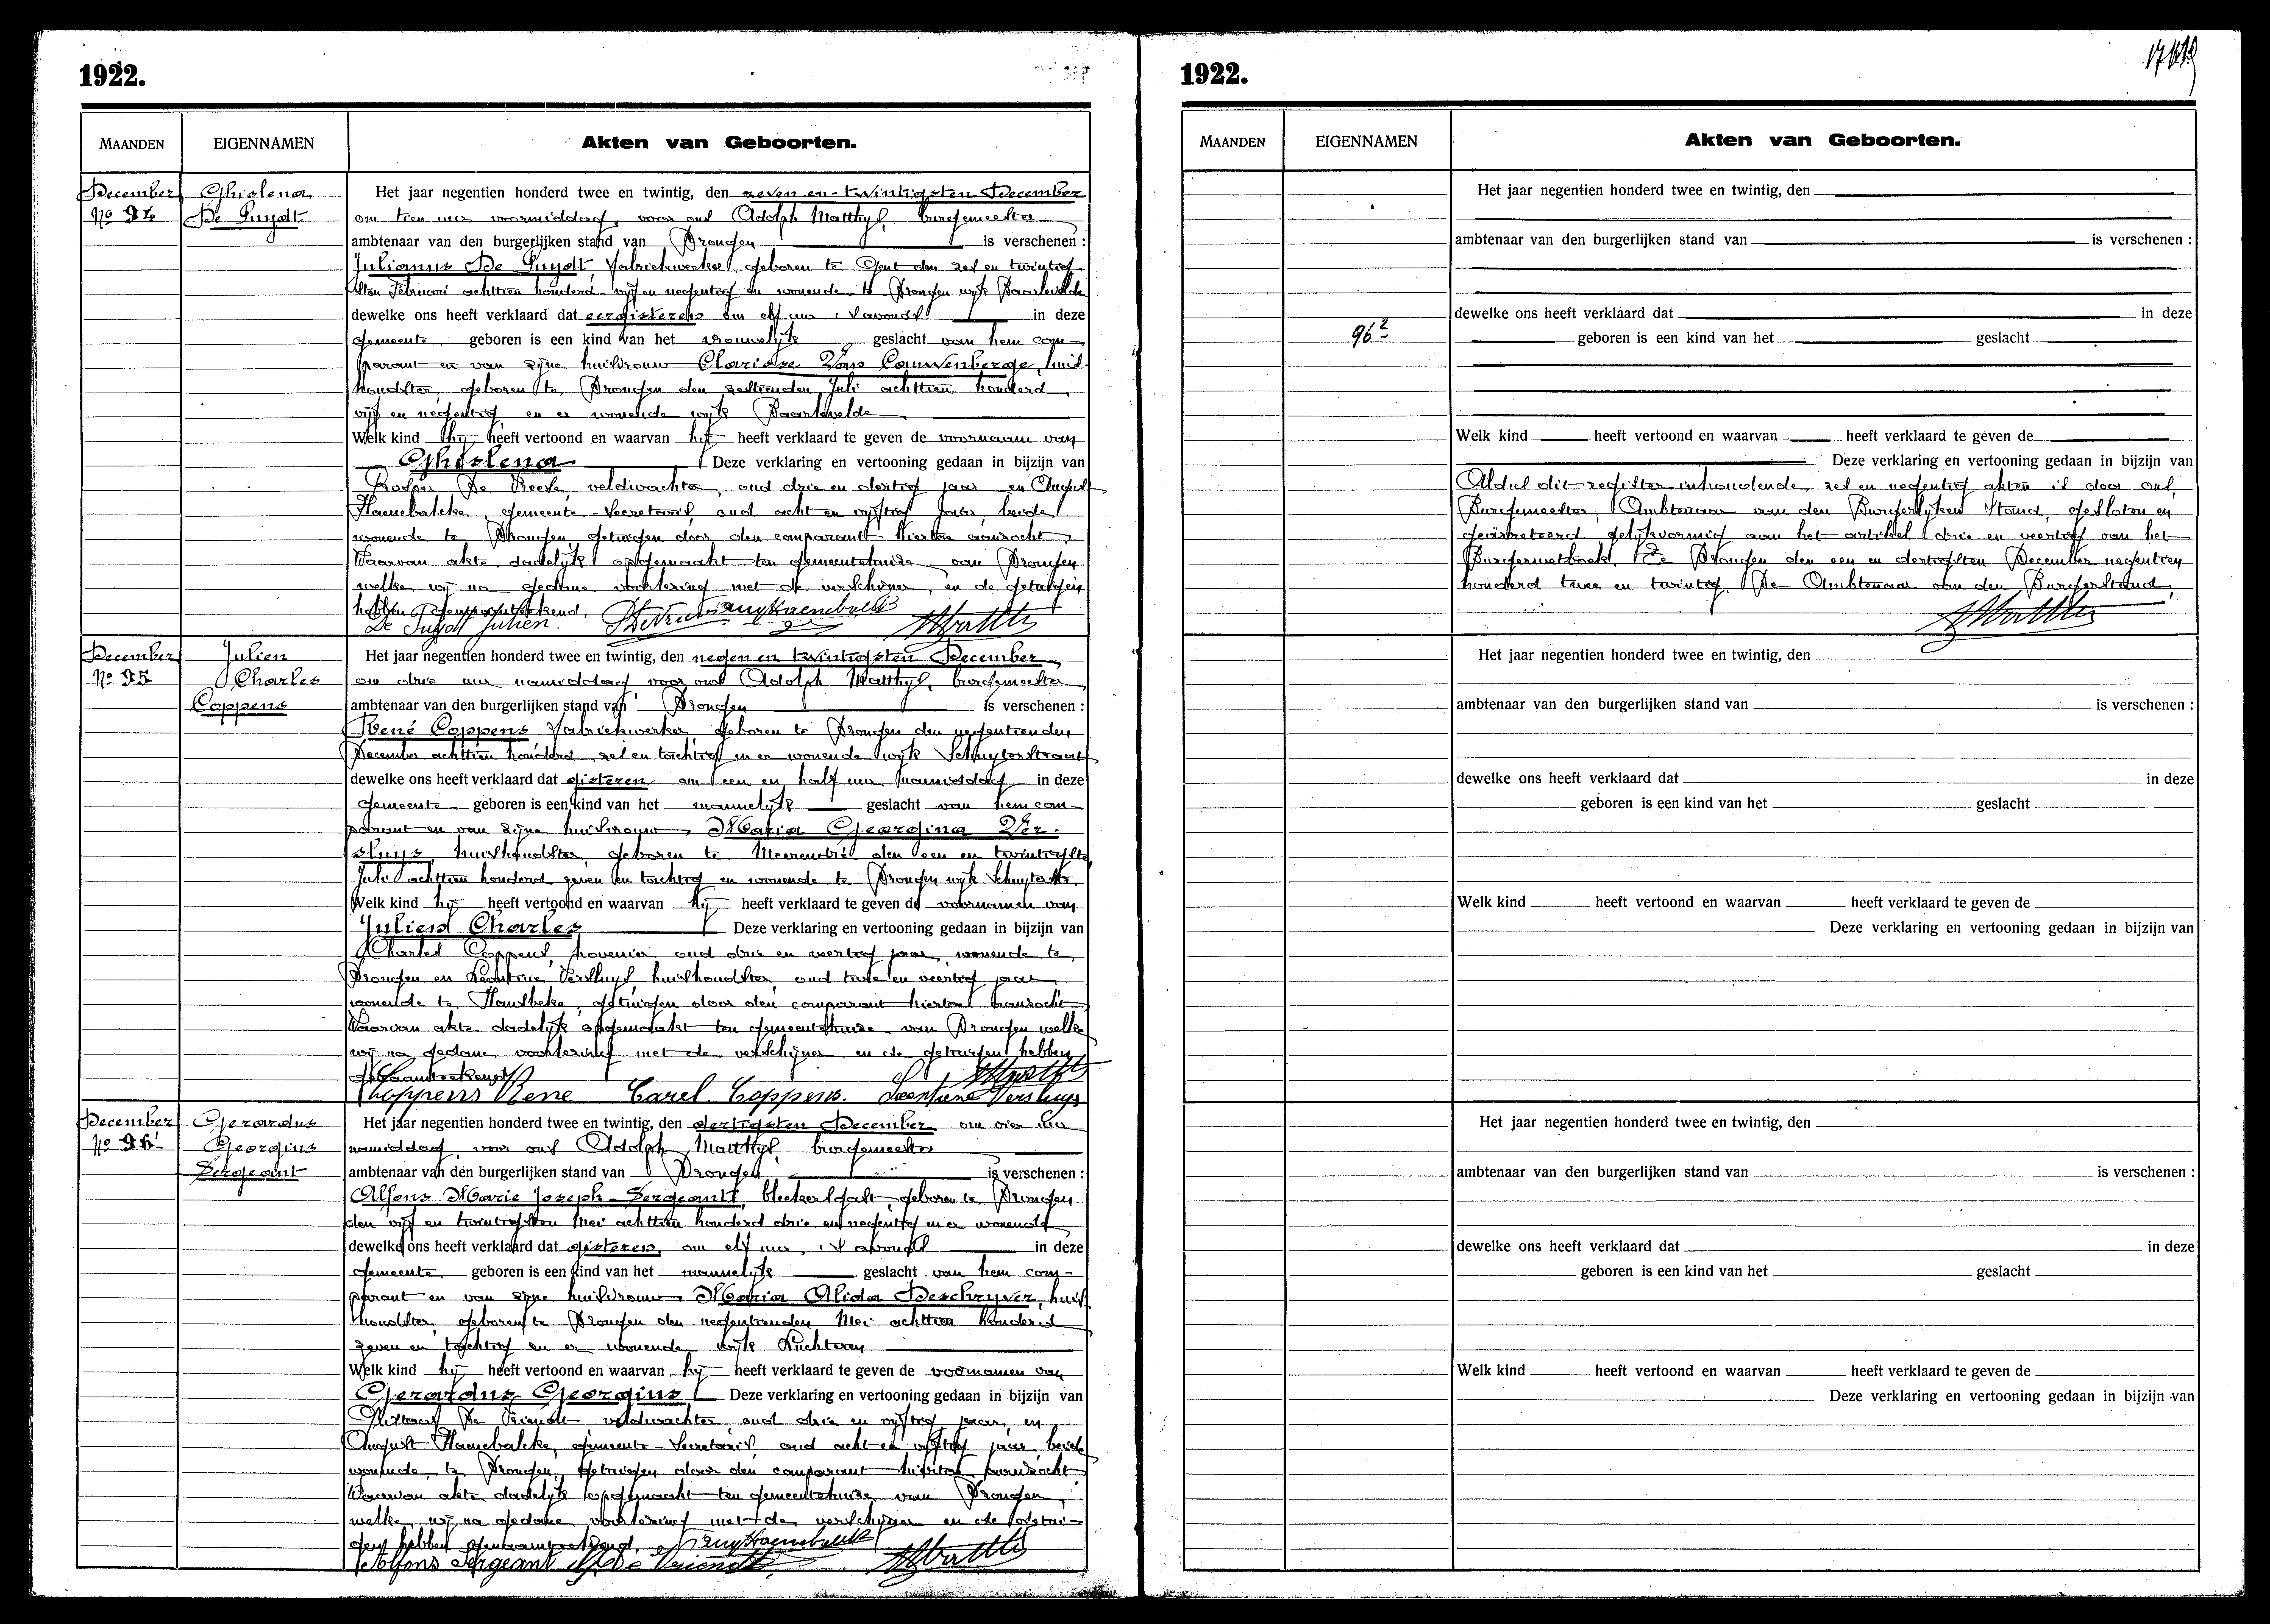 1922.
MAANDEN
EIGENNAMEN
Akten van Geboorten.
December
No 94
Ghislena
De Puydt
Het jaar negentien honderd twee en twintig, den zeven en twintigsten December
om tien uur voormiddag, voor ons Adolph Matthys, burgemeester
ambtenaar van den burgerlijken stand van Drongen is verschenen :
Julianus De Puydt, fabriekwerker, geboren te Gent den zes en twintig
sten Februari achttien honderd vijf en negentig en wonende te Drongen wijk Baarlevelde
dewelke ons heeft verklaard dat eergisteren om elf uur 's avonds in deze
gemeente geboren is een kind van het vrouwelijk geslacht van hem com-
parant en van zijne huisvrouw Clarisse Van Couwenberge, huis
houdster, geboren te Drongen den zestienden Juli achttien honderd
vijf en negentig en er wonende wijk Baarlevelde
Welk kind hij heeft vertoond en waarvan hij heeft verklaard te geven de voornaam van
Ghislena Deze verklaring en vertooning gedaan in bijzijn van
De veldwachter, oud drie en dertig jaar en August
Haenebalcke gemeente-Secretaris, oud acht en vijftig jaar, beide
wonende te Drongen, getuigen door den comparant hiertoe aanzocht,
Waarvan akte dadelijk opgemaakt ten gemeentehuize van Drongen
welke wij na gedane voorlezing met de verschijner, en de getuigen
hebben
De Puydt Julien.
December
No 95
Julien
Charles
Coppens
Het jaar negentien honderd twee en twintig, den negen en twintigsten December
om drie uur namiddag voor ons Adolph Matthys, burgemeester
ambtenaar van den burgerlijken stand van Drongen is verschenen :
René Coppens fabriekwerker, geboren te Drongen den negentienden
December achttien honderd zes en tachtig en er wonende wijk Schuyterstraat
dewelke ons heeft verklaard dat gisteren om een en half uur namiddag in deze
gemeente geboren is een kind van het mannelijk geslacht van hem com-
parant en van zijne huisvrouw Maria Georgina Ver-
sluys, huishoudster, geboren te Meerendré den een en twintigste
Juli achttien honderd zeven en tachtig en wonende te Drongen wijk
Welk kind hij heeft vertoond en waarvan hij heeft verklaard te geven de voornamen van
Julien Charles Deze verklaring en vertooning gedaan in bijzijn van
Charles Coppens, hovenier oud drie en veertig jaar, wonende te
Drongen en Leontine Versluys, huishoudster, oud twee en veertig jaar
wonende te Hansbeke, getuigen door den comparant hiertoe aanzocht
Waarvan akte dadelijk opgemaakt ten gemeentehuize van Drongen welke
wij na gedane voorlezing met de verschijner en de getuigen hebben
Coppens Rene Carel Coppens. Leontiene Versluys
December
No 96
Gerardus
Georgius
Sergeant
Het jaar negentien honderd twee en twintig, den dertigsten December om vier uur
namiddag, voor ons Adolph Matthys, burgemeester
ambtenaar van den burgerlijken stand van Drongen is verschenen :
Alfons Marie Joseph Sergeant, geboren te Drongen
den vijf en twintigsten Mei achttien honderd drie en negentig en er wonende
dewelke ons heeft verklaard dat gisteren, om elf uur, 's avonds in deze
gemeente geboren is een kind van het mannelijk geslacht van hem com-
parant en van zijne huisvrouw Maria Alida Deschryver, huis
houdster, geboren te Drongen den negentienden Mei achttien honderd
zeven en tachtig en er wonende wijk Luchteren
Welk kind hij heeft vertoond en waarvan hij heeft verklaard te geven de voornamen van
Gerardus Georgius Deze verklaring en vertooning gedaan in bijzijn van
De Vriendt veldwachter oud drie en vijftig jaar, en
August Haenebalcke, gemeente-Secretaris oud acht en vijftig jaar beide
wonende te Drongen, getuigen door den comparant hiertoe aanzocht
Waarvan akte dadelijk opgemaakt ten gemeentehuize van Drongen,
welke wij na gedane voorlezing met de verschijner en de getui-
gen hebben
Alfons Sergeant De Vriendt
1922.
MAANDEN
EIGENNAMEN
Akten van Geboorten.
Het jaar negentien honderd twee en twintig, den
ambtenaar van den burgerlijken stand van is verschenen :
dewelke ons heeft verklaard dat in deze
96
geboren is een kind van het geslacht
Welk kind heeft vertoond en waarvan heeft verklaard te geven de
Deze verklaring en vertooning gedaan in bijzijn van
Aldus dit register inhoudende zes en negentig akten is door ons,
Burgemeester, Ambtenaar van den Burgerlijken Stand, gesloten en
gearresteerd gelijkvormig aan het artikel drie en veertig van het
Burgerwetboek. Te Drongen den een en dertigsten December negentien
honderd twee en twintig. De Ambtenaar van den Burgerstand,
Het jaar negentien honderd twee en twintig, den
ambtenaar van den burgerlijken stand van is verschenen :
dewelke ons heeft verklaard dat in deze
geboren is een kind van het geslacht
Welk kind heeft vertoond en waarvan heeft verklaard te geven de
Deze verklaring en vertooning gedaan in bijzijn van
Het jaar negentien honderd twee en twintig, den
ambtenaar van den burgerlijken stand van is verschenen :
dewelke ons heeft verklaard dat in deze
geboren is een kind van het geslacht
Welk kind heeft vertoond en waarvan heeft verklaard te geven de
Deze verklaring en vertooning gedaan in bijzijn van